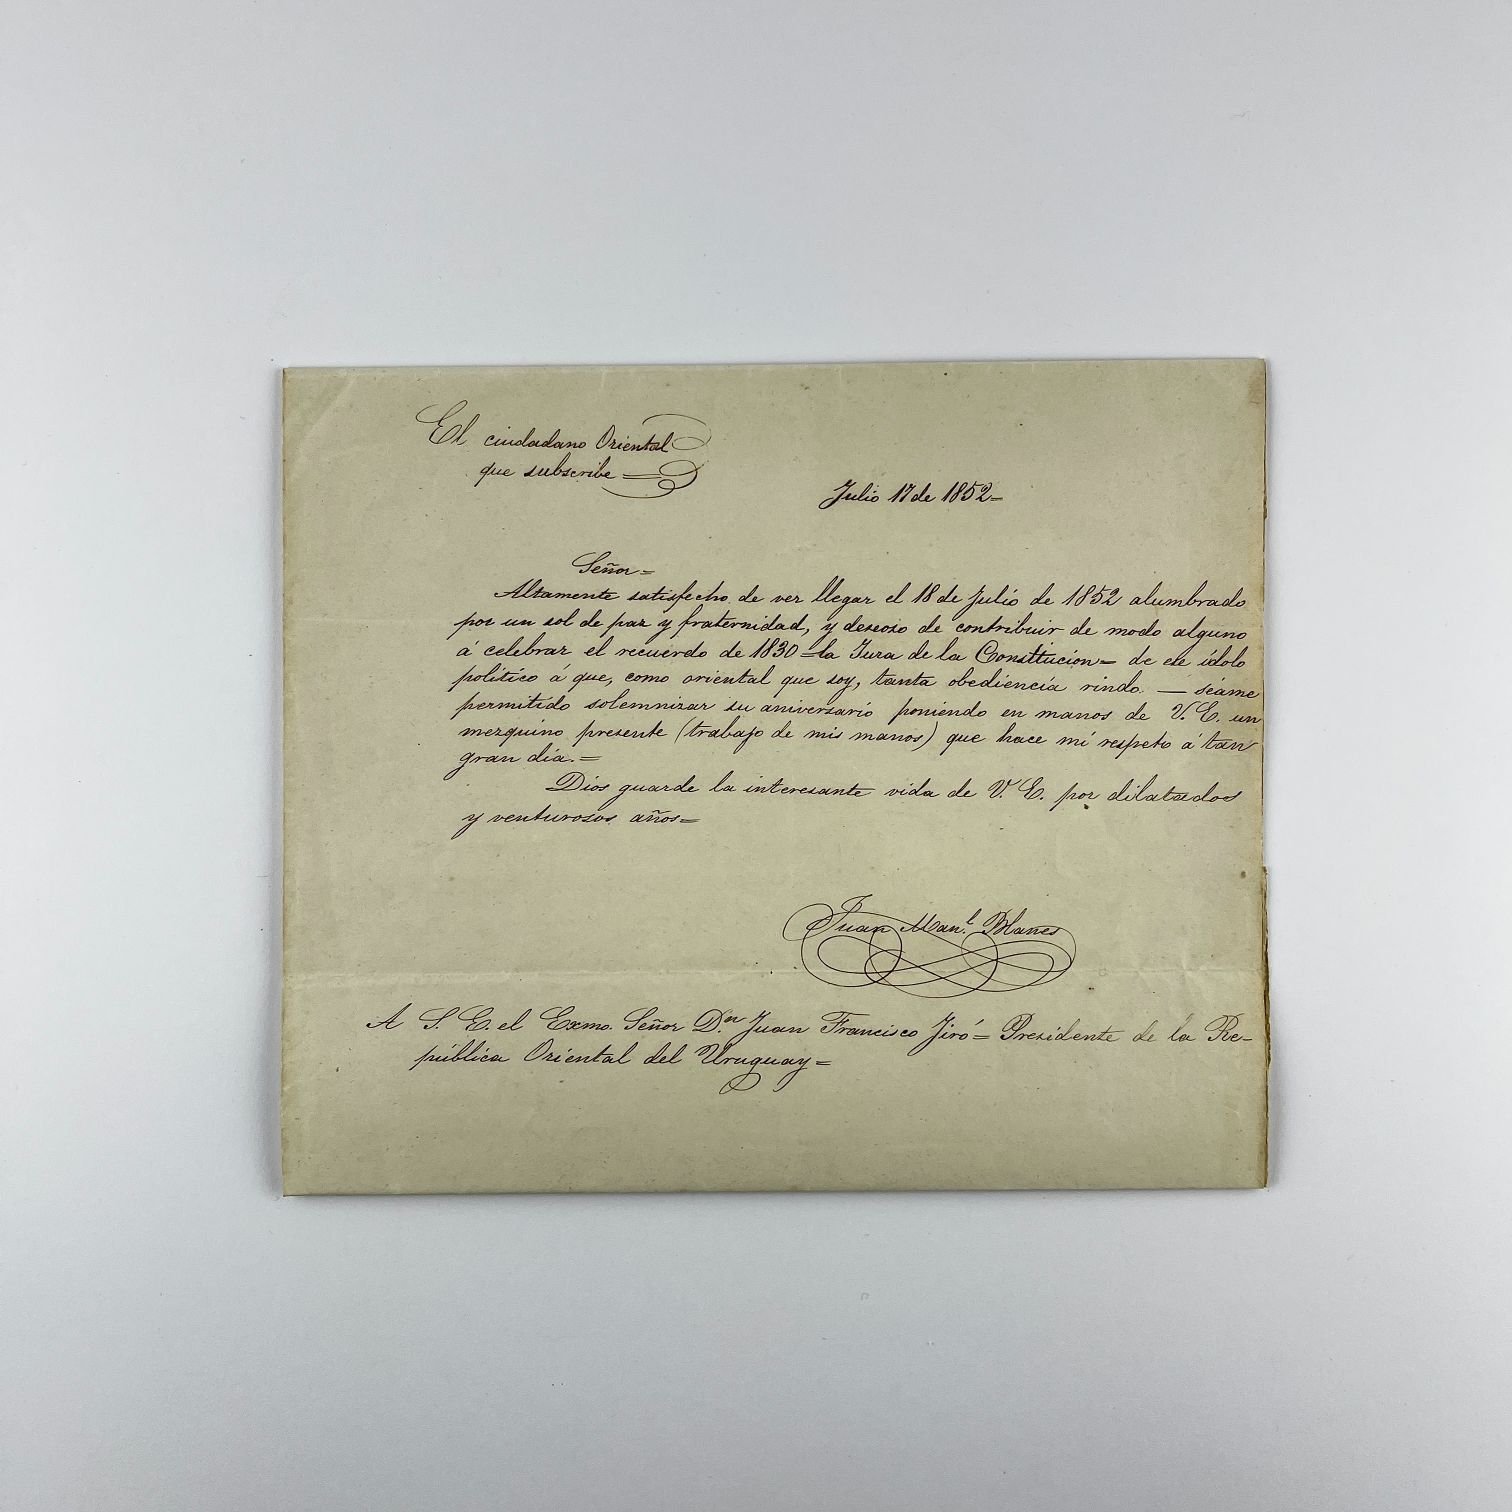 El ciudadano Oriental
que subscribe =
Julio 17 de 1852=
Señor=
Altamente satisfecho de ver llegar el 18 de Julio de 1852 alumbrado
por un sol de paz y fraternidad, y deseoso de contribuir de modo alguno
á celebrar el recuerdo de 1830 = la Jura de la Constitucion = de ese ídolo
político á que, como oriental que soy, tanta obediencia rindo. — séame
permitido solemnizar su aniversario poniendo en manos de V. E. un
mezquino presente (trabajo de mis manos) que hace mi respeto á tan
gran día. =
Dios guarde la interesante vida de V. E. por dilatados
y venturosos años =
Juan Man.l Blanes
A S. E. el Exmo. Señor D.n Juan Francisco Jiró = Presidente de la Re-
pública Oriental del Uruguay =